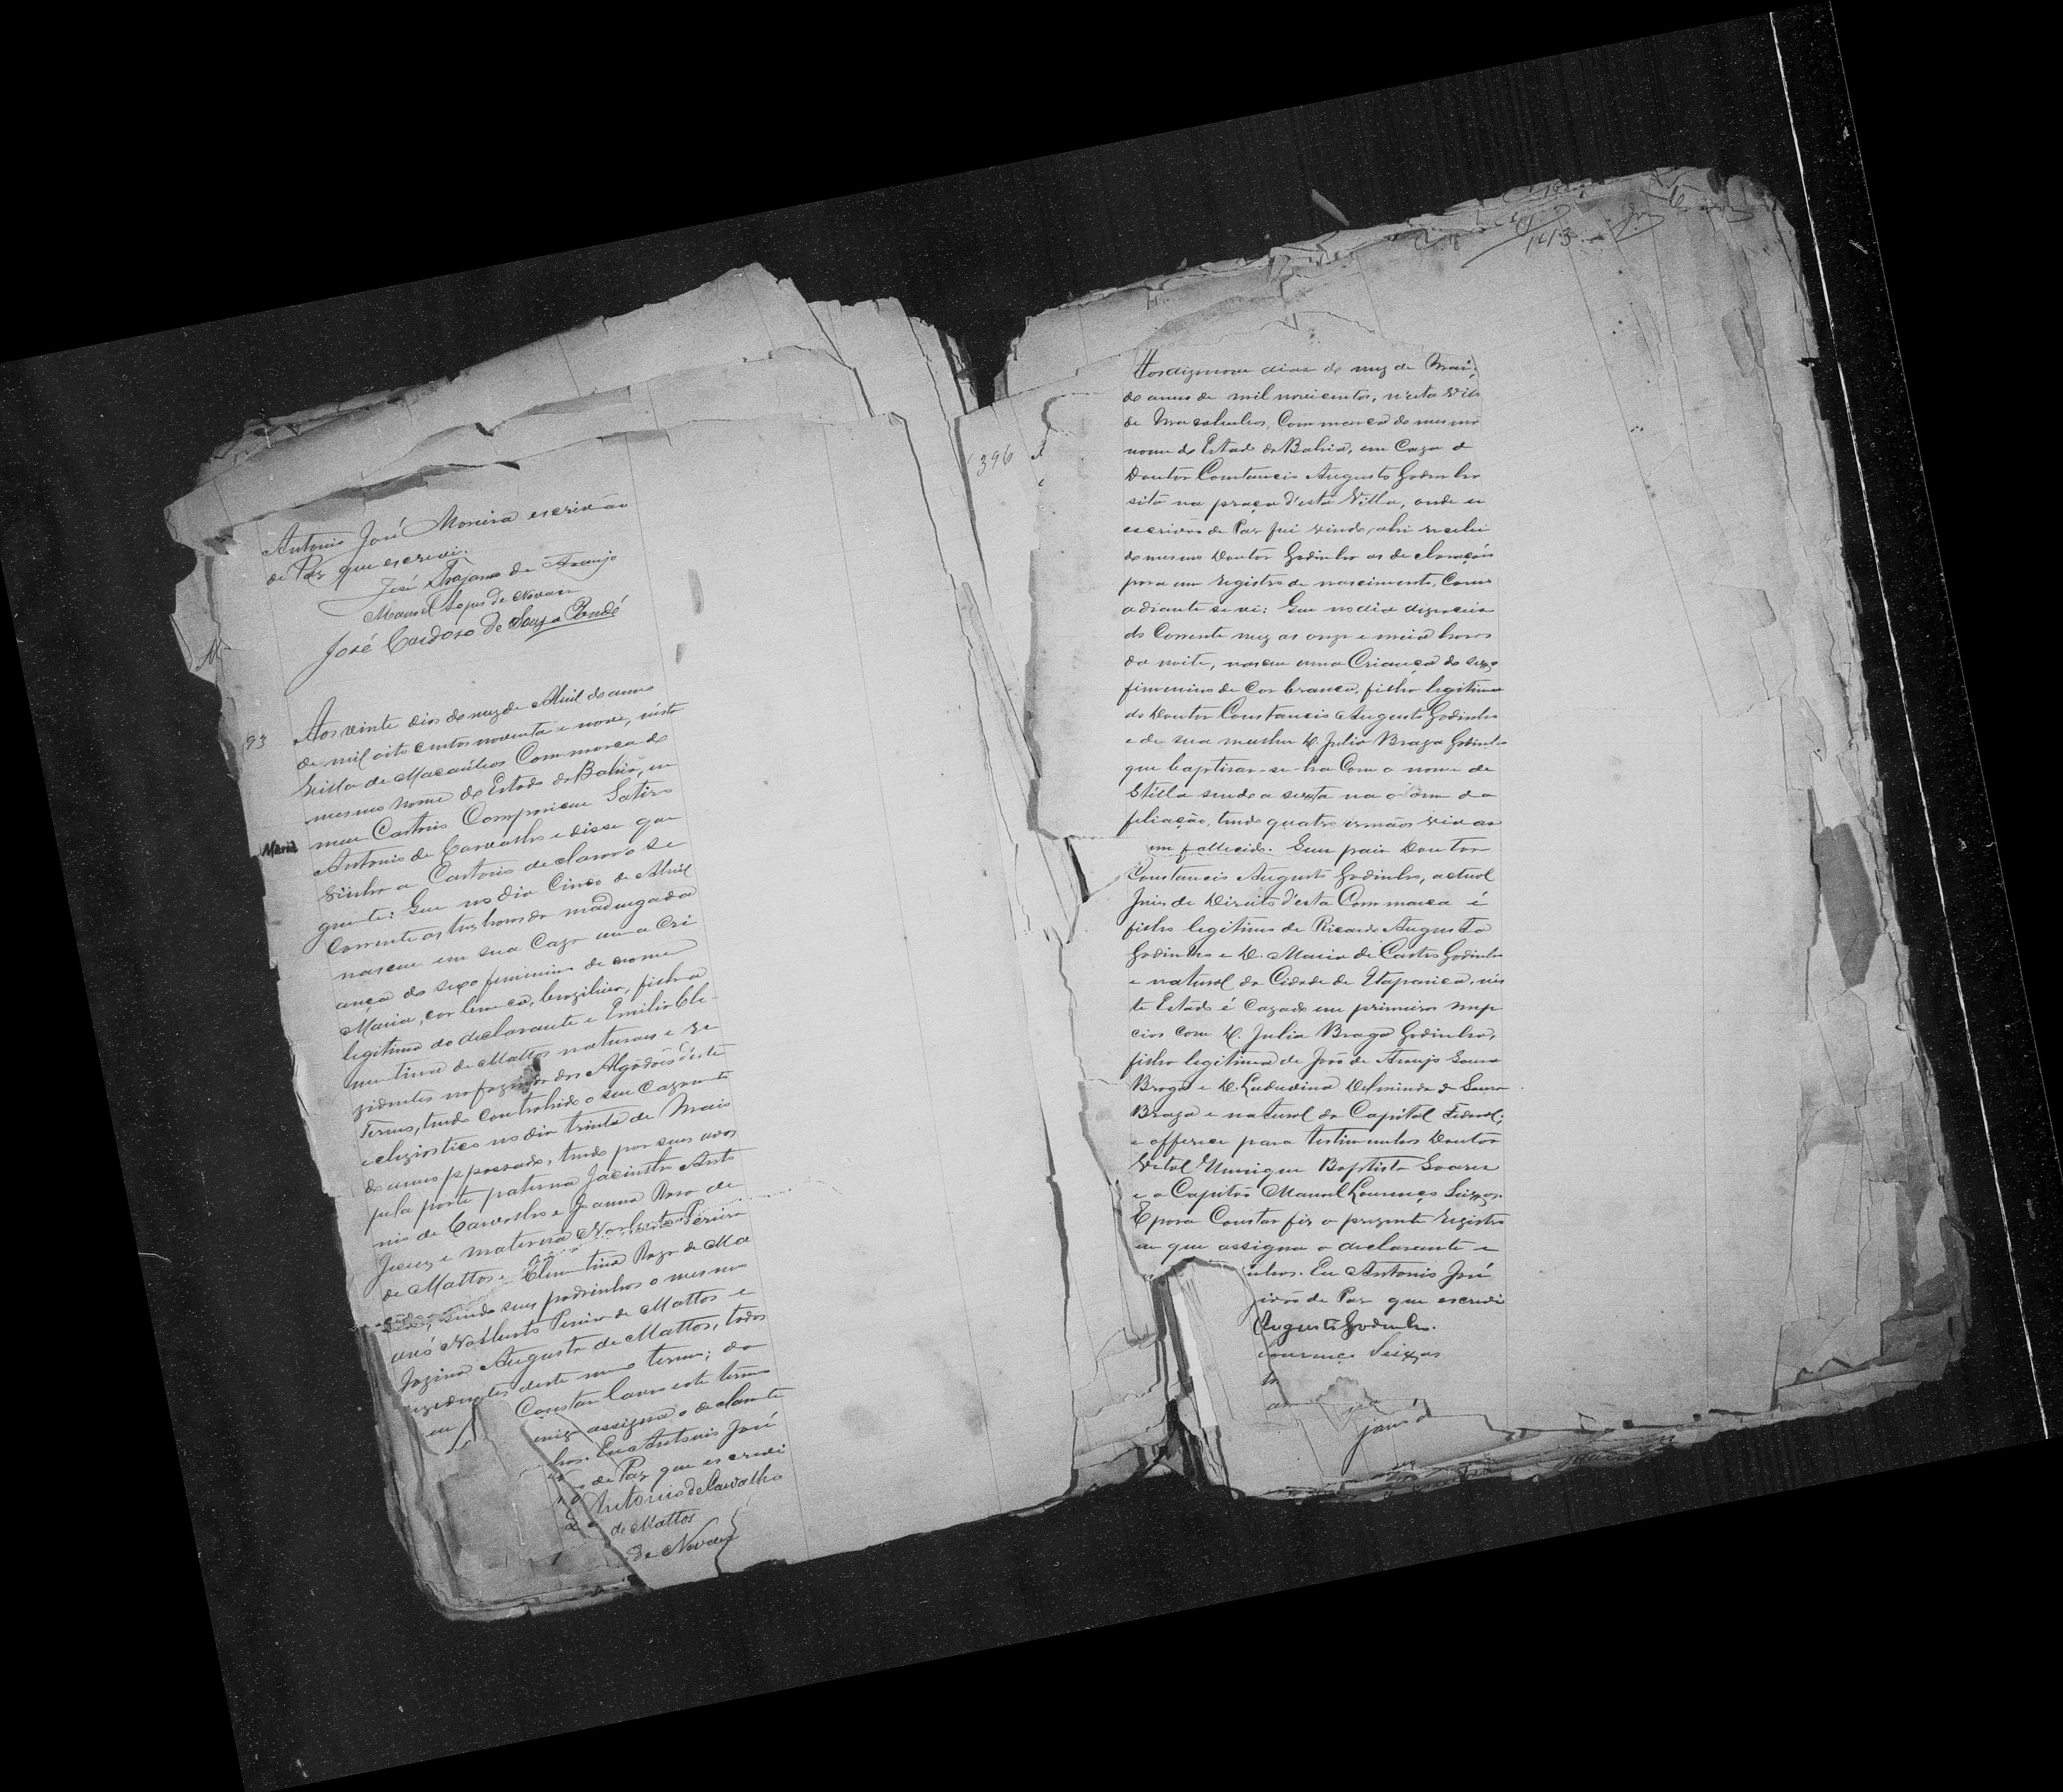 Antonio José Moreira escrivão
de Paz que escrevi.
José Trajano de Araujo
Manoel Lopes de Novaes
José Cardoso de Souza Condé
93
Maria
Aos vinte dias do mez de Abril do anno
de mil oito centos noventa e nove, nesta
Villa de Macaúbas Commarca do
mesmo nome do Estado da Bahia, em
meu Cartorio Compareceu Satiro
Antonio de Carvalho e disse que
vinha a Cartorio declarar o se
guinte: Que no dia Cinco de Abril
Corrente as tres horas da madrugada
nasceu em sua Caza uma Cri
ança do sexo feminino de nome
Maria, cor branca, brazileira, filha
legitima do declarante e Emilia Cle-
mentina de Mattos naturaes e re
zidentes na fazenda dos Algodões d'este
Termo, tendo contrahido o seu Cazamento
ecleziastico no dia trinta de Maio
do anno p. passado, tendo por seus avos
pela parte paterna Jacintho Anto
nio de Carvalho e Joanna Roza de
Jesus e materna Norberto Pereira
de Mattos e Clementina Roza de Ma
sendo seus padrinhos o mesmo
avô Norberto Pereira de Mattos e
Jozina Augusta de Mattos, todos
rezidentes deste mesmo termo; do
Constar lavro este termo
assigna o declarante
Eu Antonio José
de Paz que escrevi
Antonio de Carvalho
de Mattos
de Novaes
143
396
Aos dezenove dias do mez de Maio
do anno de mil novecentos, n'esta Villa
de Macahubas, Commarca do mesmo
nome do Estado da Bahia, em Caza do
Doutor Constancio Augusto Godinho
sita na praça d'esta Villa, onde eu
escrivão de Paz fui vindo, ahi recebi
do mesmo Doutor Godinho as declarações
para um registro de nascimento, Como
adiante se vê: Que no dia dezeseis
do Corrente mez as onze e meia horas
da noite, nasceu uma Criança do sexo
feminino de Cor branca, filha legitima
do Doutor Constancio Augusto Godinho
e de sua mulher D. Julia Braga Godinho
que baptisar-se-ha Com o nome de
Stella sendo a sexta na ordem da
filiação, tendo quatro irmãos vivos
um fallecido. Seu pai o Doutor
Constancio Augusto Godinho, actual
Juis de Direito d'esta Commarca é
filho legitimo de Ricardo Augusto
Godinho e D. Maria de Castro Godinho
e natural da Cidade de Itaparica, nes
te Estado é Cazado em primeiras nup
cias com D. Julia Braga Godinho,
filha legitima de João de Araujo Souza
Braga e D. Luduvina Delminda de Souza
Braga e natural da Capital Federal;
e offerece para testimunhas Doutor
Vital Henrique Baptista Soares
e o Capitão Manoel Lourenço Seixas.
E para Constar fiz o prezente registro
em que assigna o declarante e
Eu Antonio José
de Paz que escrevi
Augusto Godinho.
Lourenço Seixas